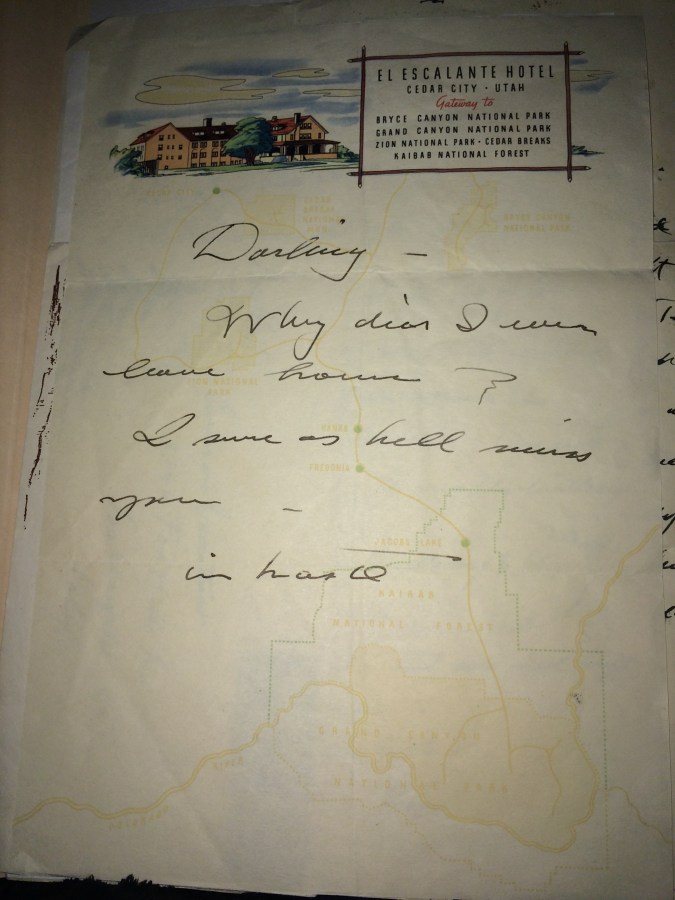 EL ESCALANTE HOTEL
CEDAR CITY · UTAH
Gateway to
BRYCE CANYON NATIONAL PARK
GRAND CANYON NATIONAL PARK
ZION NATIONAL PARK · CEDAR BREAKS
KAIBAB NATIONAL FOREST
BRYCE CANYON
NATIONAL PARK
Darling –
Why did I ever
leave home ?
ZION NATIONAL
PARK
KANAB
I sure as hell miss
FREDONIA
you –
JACOBS LAKE
in haste
KAIBAB
NATIONAL FOREST
GRAND CANYON
RIVER
NATIONAL PARK
COLORADO